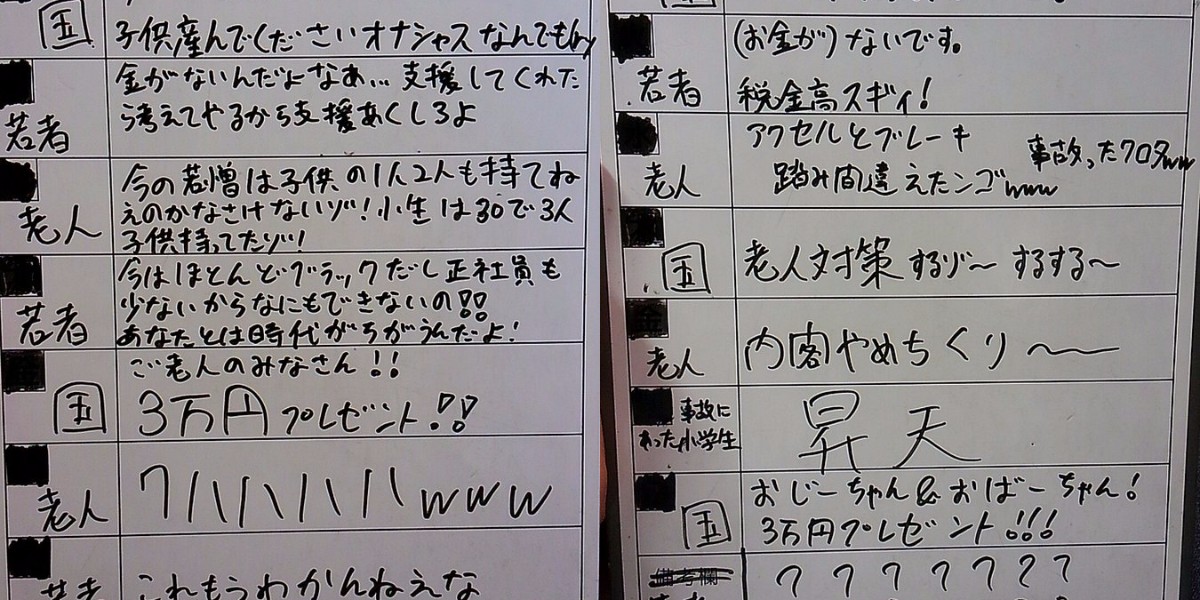 国
子供産んでくださいオナシャスなんでもしn
若者
金がないんだよなあ…支援してくれた
ら考えてやるから支援あくしろよ
老人
今の若僧は子供の1人2人も持てね
えのかなさけないゾ!小生は30で3人
子供持ってたゾ!
若者
今はほとんどブラックだし正社員も
少ないからなにもできないの!!
あなたとは時代がちがうんだよ!
国
ご老人のみなさん!!
3万円プレゼント!!
老人
ワハハハハwww
若者
これもうわかんねえな
国
若者
(お金が)ないです。
税金高スギィ!
老人
アクセルとブレーキ
踏み間違えたンゴwww
事故ったクロタww
国
老人対策するゾ〜するする〜
老人
内閣やめちくり〜
事故に
あった小学生
昇天
国
おじーちゃん&おばーちゃん!
3万円プレゼント!!!
備考欄
若者
？？？？？？？